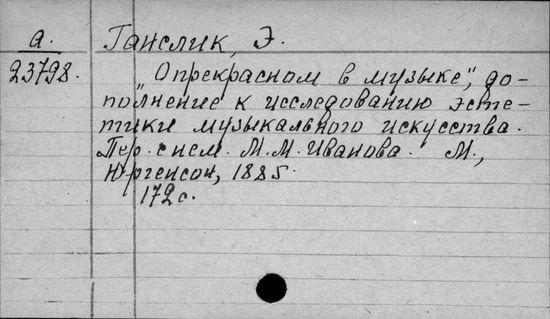 а. Ганслик, Э.
23798. „О прекрасном в музыке", до-
полнение к исследованию эсте-
тики музыкального искусства.
Пер. с нем. М.М. Иванова. М.,
Юргенсон, 1885.
172 с.